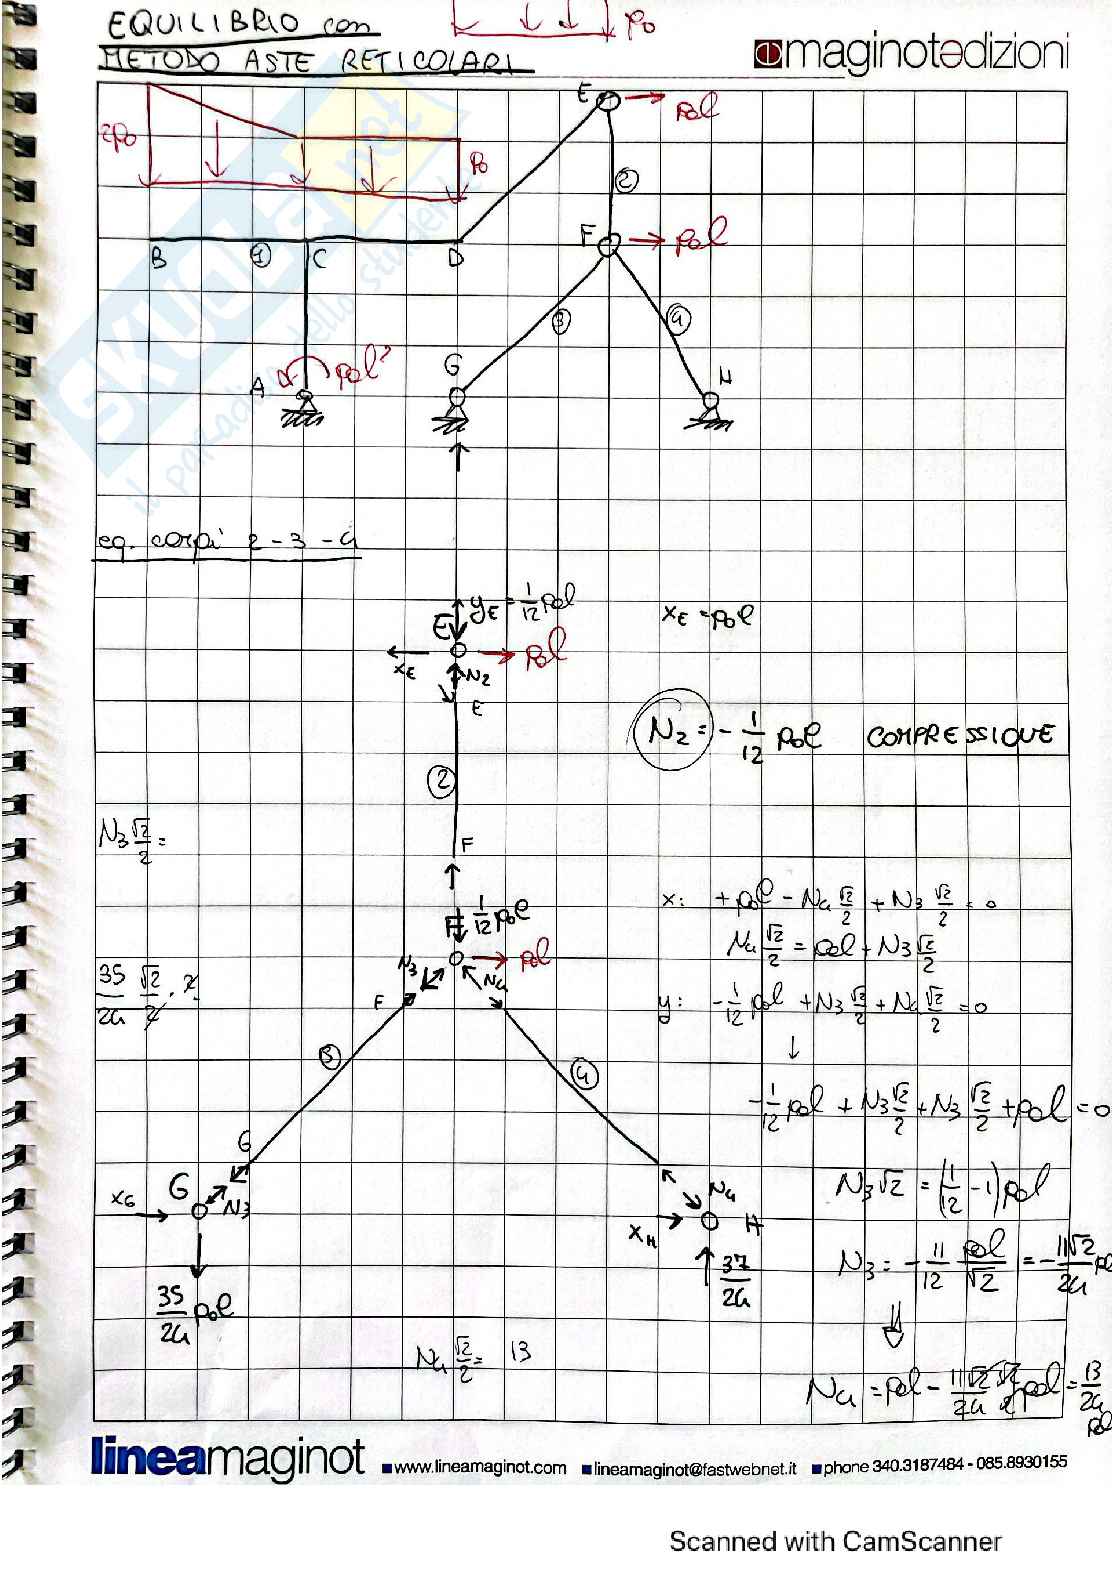 EQUILIBRIO con
METODO ASTE RETICOLARI
p₀
maginotedizioni
2p₀
p₀
E
p₀l
②
F
p₀l
B
①
C
D
③
④
A
p₀l²
G
H
SKUOLA.net
il paradiso dello studente
eq. corpi 2-3-4
E
y_E = 1/12 p₀l
x_E = p₀l
x_E
p₀l
N₂
E
N₂ = - 1/12 p₀l COMPRESSIONE
②
N₃ √2/2 =
F
F
1/12 p₀l
p₀l
x: + p₀l - N₄ √2/2 + N₃ √2/2 = 0
N₄ √2/2 = p₀l + N₃ √2/2
N₃
N₄
F
35/24 √2/2 · 2
y: - 1/12 p₀l + N₃ √2/2 + N₄ √2/2 = 0
↓
③
④
- 1/12 p₀l + N₃ √2/2 + N₃ √2/2 + p₀l = 0
G
G
x_G
N₃
N₃ √2 = (1/12 - 1) p₀l
N₄
x_H
H
37/24
N₃ = - 11/12 p₀l/√2 = - 11√2/24 p₀l
⇓
35/24 p₀l
N₄ √2/2 = 13
N₄ = p₀l - 11√2/24 √2/2 p₀l = 13/24 p₀l
lineamaginot
www.lineamaginot.com
lineamaginot@fastwebnet.it
phone 340.3187484 - 085.8930155
Scanned with CamScanner